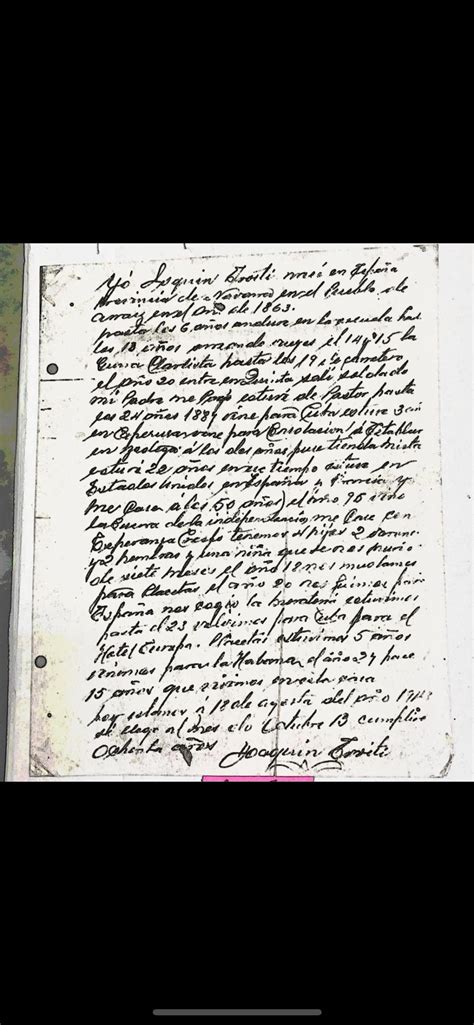 Yó Joquin Irosti nací en España
Provincia de Navarra en el Pueblo de
arraiz en el año de 1863.
hasta los 6 años anduve en la escuela has
los 13 años arreando el 14 y 15 la
Carlista hasta los 19 de carretero
el año 20 entre en Quinta salí soldado
mi Padre me Pago estuve de Pastor hasta
los 24 años 1887 vine para Cuba estuve 3
en vine para Consolacion á
en á los dos años puse tienda Mista
estuve 22 años en ese tiempo estuve en
Estados Unidos en España y Francia y
me case a los 50 años el año 95 vino
la Guerra de la independencia me Case con
Esperanza Crespo tenemos hijos 2
y 2 hembras y una niña que se nos murio
de siete meses el año 18 nos mudamos
para Placetas el año 20 nos fuimos para
España nos cogio la estuvimos
hasta el 23 volvimos para Cuba para el
Hotel Europa. Placetas estuvimos 5 años
vinimos para la Habana el año 27 hace
15 años que vivimos en esta casa
hoy estamos a 18 de agosto del año
si llego al mes de Octubre 13 cumplire
Ochenta años Joaquin Irosti